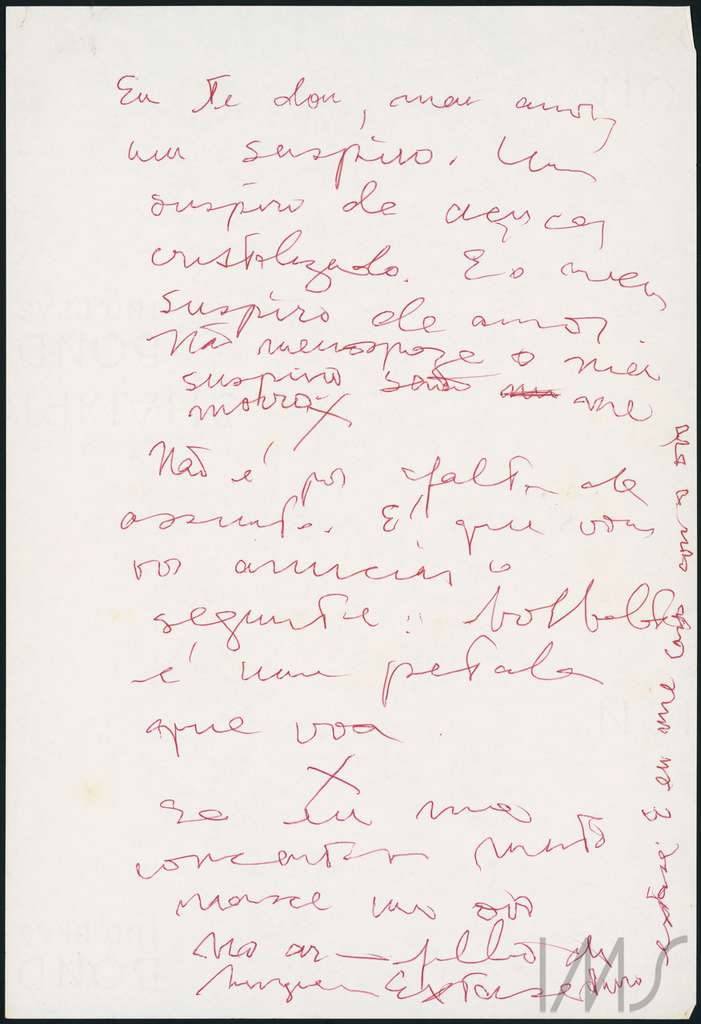 Eu te dou, meu amor,
um suspiro. Um
suspiro de açucar
cristalizado. E o meu
suspiro de amor.
Não menospreze o meu
suspiro senão me
morro. X
Não é por falta de
assunto. É que vou
vos anunciar o
seguinte: borboleta
é uma petala
que voa
X
Se eu me
concentrar muito
nasce um ovo
no ar — filho de
ninguem Extase
extase É eu me caso com o
IMS